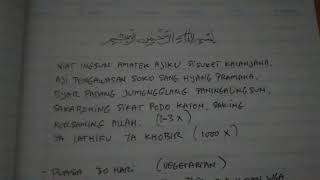 بسم الله الرحمن الرحيم
NIAT INGSUN AMATEK AJIKU SISUKET KALANJANA.
AJI PENGAWASAN SOKO SANG HYANG PRAMANA.
BYAR PADANG JUMENGGLUNG PANINGALINGSUN,
SAKABEHING SIFAT PODO KATON, SAKING
KERSANING ALLAH. (1-3 X)
YA LATHIFU YA KHOBIR (1000 X)
- PUASA 30 HARI (VEGETARIAN)